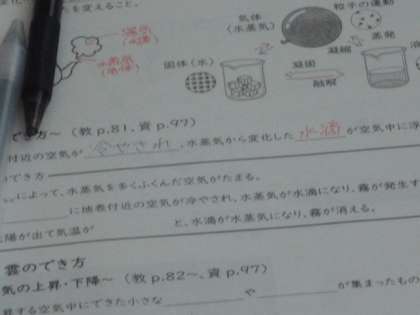 を変えること。
気体
(水蒸気)
粒子の運動
湯気
(水滴)
水蒸気
(気体)
凝縮
蒸発
固体(水)
凝固
融解
でき方~(教p.81、資p.97)
付近の空気が 冷やされ 、水蒸気から変化した 水滴 が空気中に浮
のでき方
によって、水蒸気を多くふくんだ空気がたまる。
に地表付近の空気が冷やされ、水蒸気が水滴になり、霧が発生す
太陽が出て気温が と、水滴が水蒸気になり、霧が消える。
雲のでき方
気の上昇・下降~(教p.82~、資p.97)
昇する空気中にできた小さな や が集まったもの